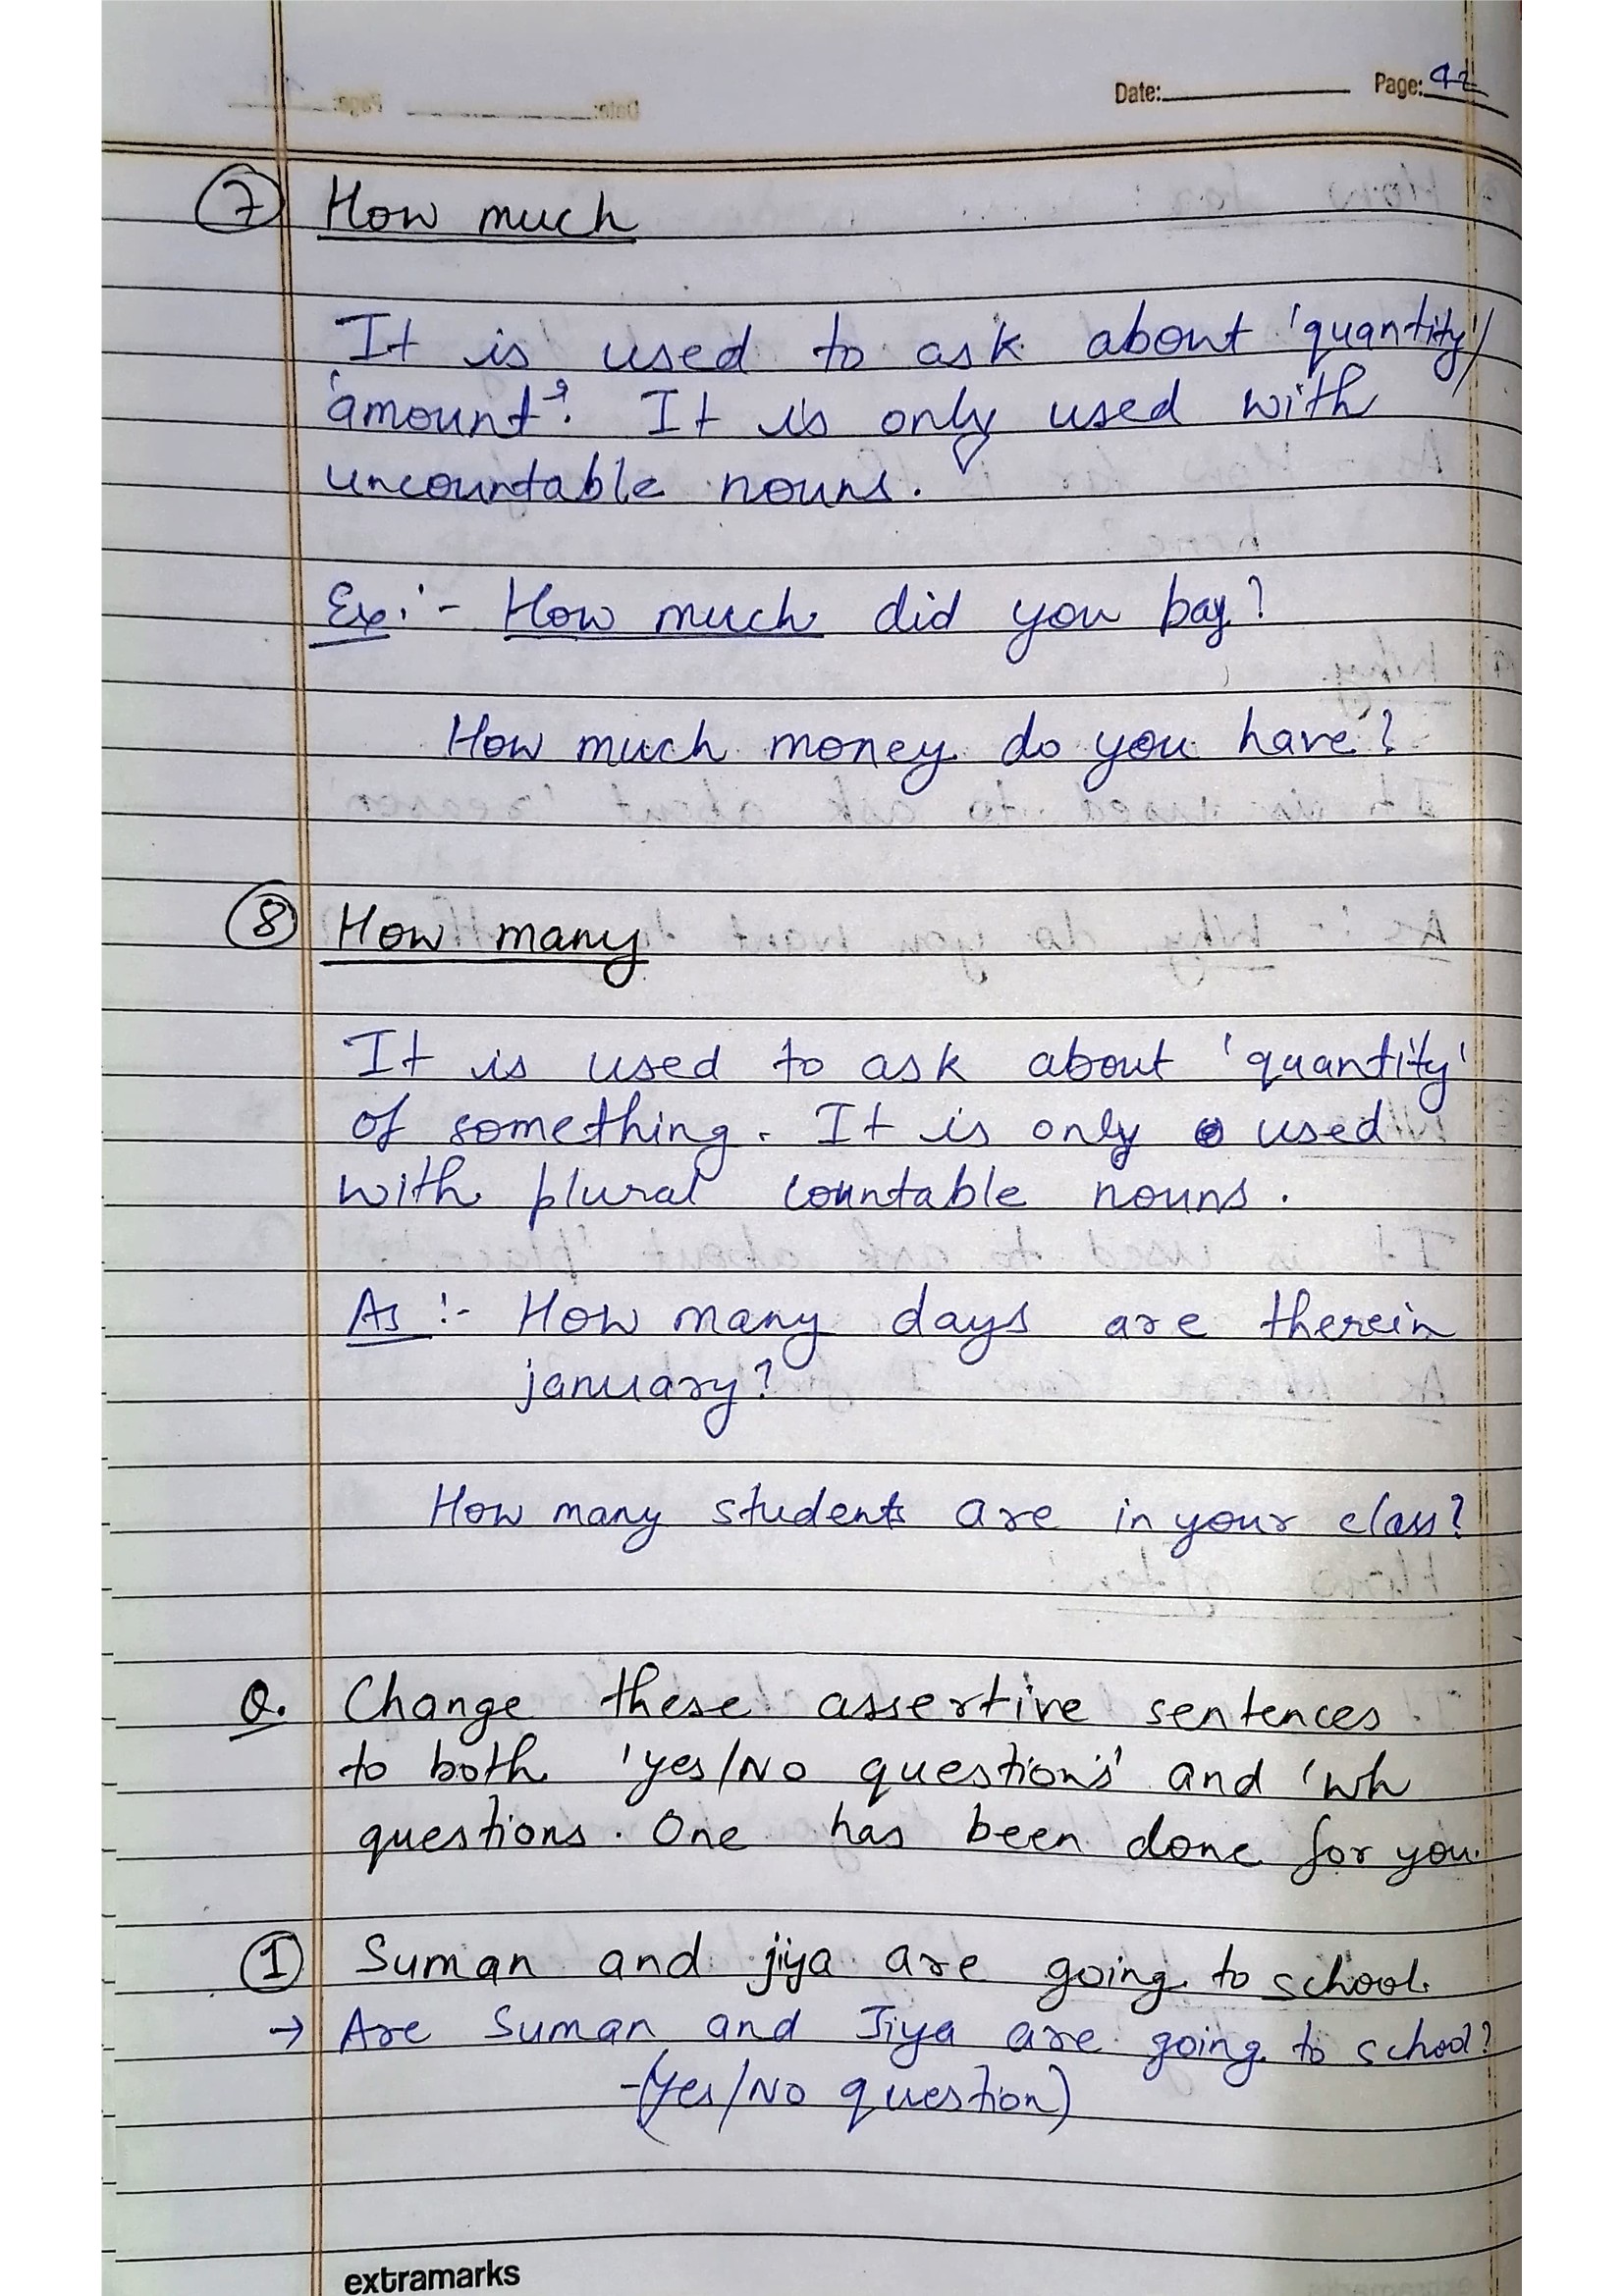 Date: Page: 42
7 How much
It is used to ask about 'quantity'/
'amount'. It is only used with
uncountable nouns.
Ex:- How much did you pay?
How much money do you have?
8 How many
It is used to ask about 'quantity'
of something. It is only used
with plural countable nouns.
As :- How many days are therein
january?
How many students are in your class?
Q. Change these assertive sentences
to both 'yes/No questions' and 'wh
questions. One has been done for you.
1 Suman and jiya are going to school.
→ Are Suman and Jiya are going to school?
-(Yes/No question)
extramarks